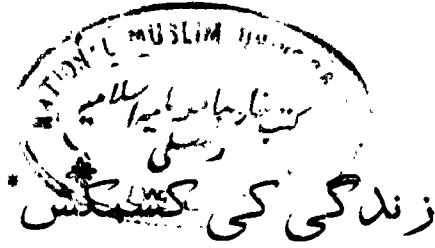 NATIONAL MUSLIM UNIVER
کتب خانہ جامعہ ملیہ اسلامیہ
دہلی
زندگی کی کشمکش